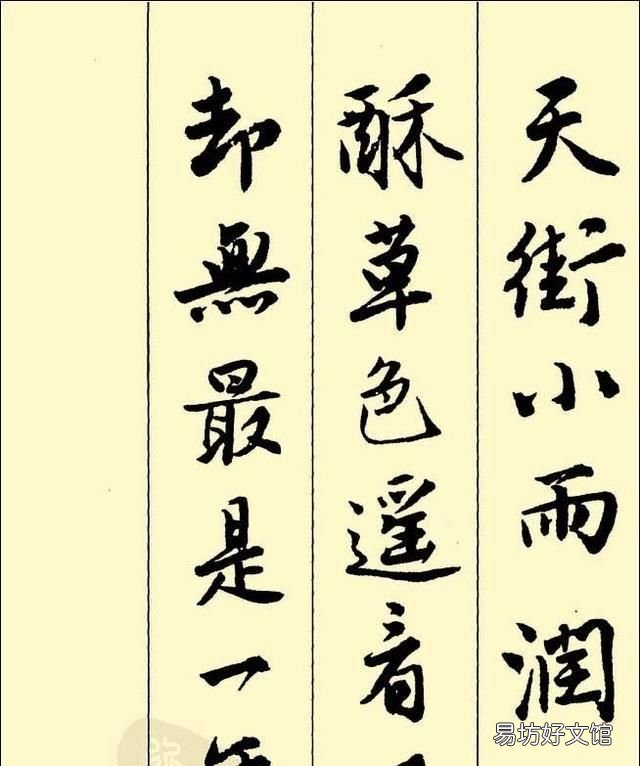 天街小雨潤
酥草色遥看
却無最是一
易坊好文馆